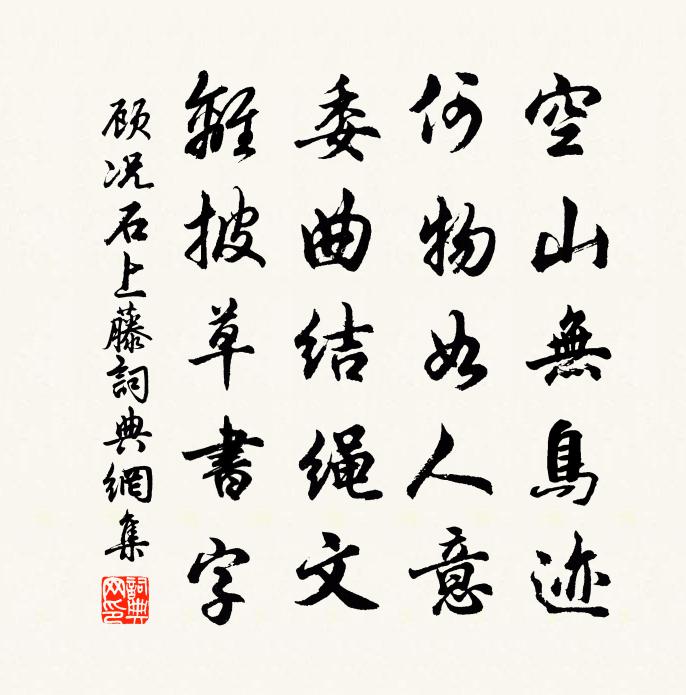 空山無鳥迹
何物如人意
委曲結繩文
離披草書字
顾况石上藤詞典網集
詞典網印